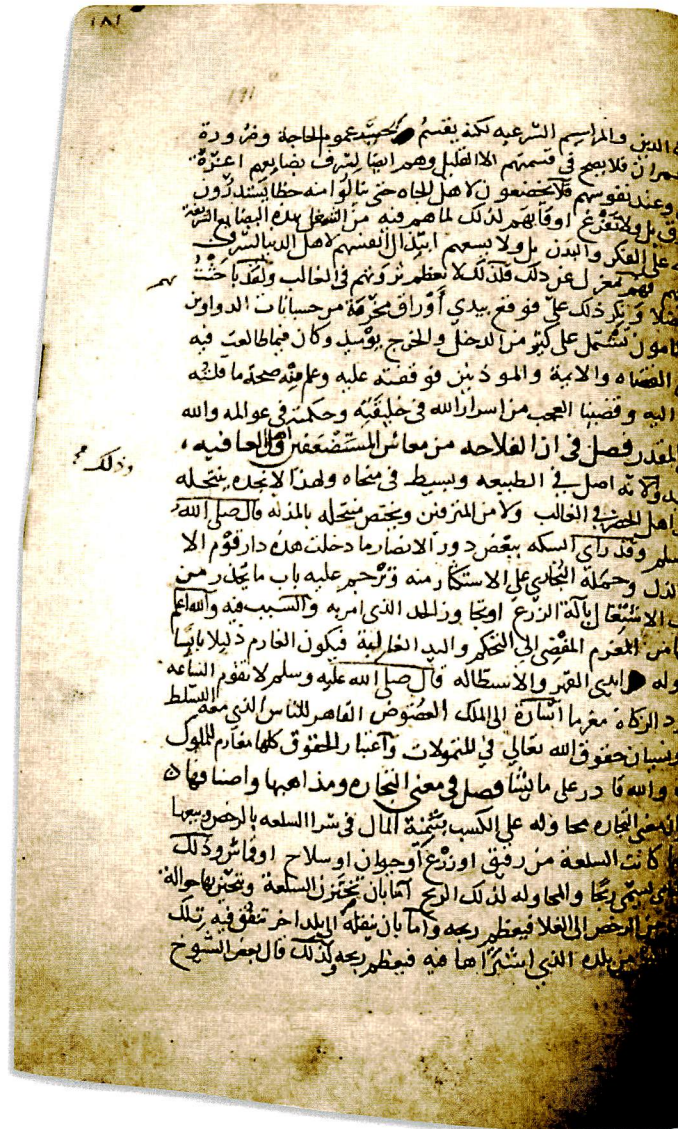 ١٨١
181
الدين والمراسيم الشرعيه لكنه يقسم بحسب عموم الحاجة وضرورة
عمران فلا يصح في قسمتهم الا القليل وهم ايضا لشرف بضايعهم اعزة
وعند نفوسهم فلا يخضعون لاهل الجاه حتى ينالوا منه حظا يستدرون
رزق بل ولا تفرغ اوقاتهم لذلك لما هم فيه من الشغل بهذه البضايع الشريفة
على الفكر والبدن بل ولا يسعهم ابتذال انفسهم لاهل الدنيا لشرف
فهم بمعزل عن ذلك فلذلك لا تعظم ثروتهم في الغالب ولقد باحثت
فضلا ونكر ذلك علي فوقع بيدي أوراق مخرمة من حسابات الدواوين
مامون تشتمل على كثير من الدخل والخرج يوميذ وكان فيما طالعت فيه
القضاه والايمة والموذنين فوقفته عليه وعلم منه صحة ما قلته
اليه وقضينا العجب من اسرار الله في خليقته وحكمته في عوالمه والله
المقدر فصل في ان الفلاحه من معاش المستضعفين واهل العافيه
وذلك
ولانه اصل في الطبيعه وبسيط في منحاه ولهذا لا تجده ينتحله
اهل الحضر في الغالب ولا من المترفين ويختص منتحله بالمذله قال صلى الله
سلم وقد راى السكه ببعض دور الانصار ما دخلت هذه دار قوم الا
الذل وحمله البخاري على الاستكثار منه وترجم عليه باب ما يحذر من
الاشتغال بآلة الزرع او تجاوز الحد الذي امر به والسبب فيه والله اعلم
من المغرم المفضي الى التحكم واليد الغالبة فيكون الغارم ذليلا بايسا
ايدي القهر والاستطاله قال صلى الله عليه وسلم لا تقوم الساعه
الزكاة مغرما اشارة الى الملك العضوض القاهر للناس الذي معه التسلط
ونسيان حقوق الله تعالى في المتمولات واعتبار الحقوق كلها مغارم للملوك
والله قادر على ما يشا فصل في معنى التجاره ومذاهبها واصنافها
معنى التجاره محاوله على الكسب بتنمية المال في شرا السلعه بالرخص وبيعها
كانت السلعة من رقيق او زرع أو حيوان او سلاح او قماش وذلك
يسمى ربحا والمحاوله لذلك الربح اما بان يختزن السلعة ويتحين بها حوالة
من الرخص الى الغلا فيعظم ربحه واما بان ينقله الى بلد اخر تنفق فيه تلك
من بلده الذي اشتراها فيه فيعظم ربحه ولذلك قال بعض الشيوخ